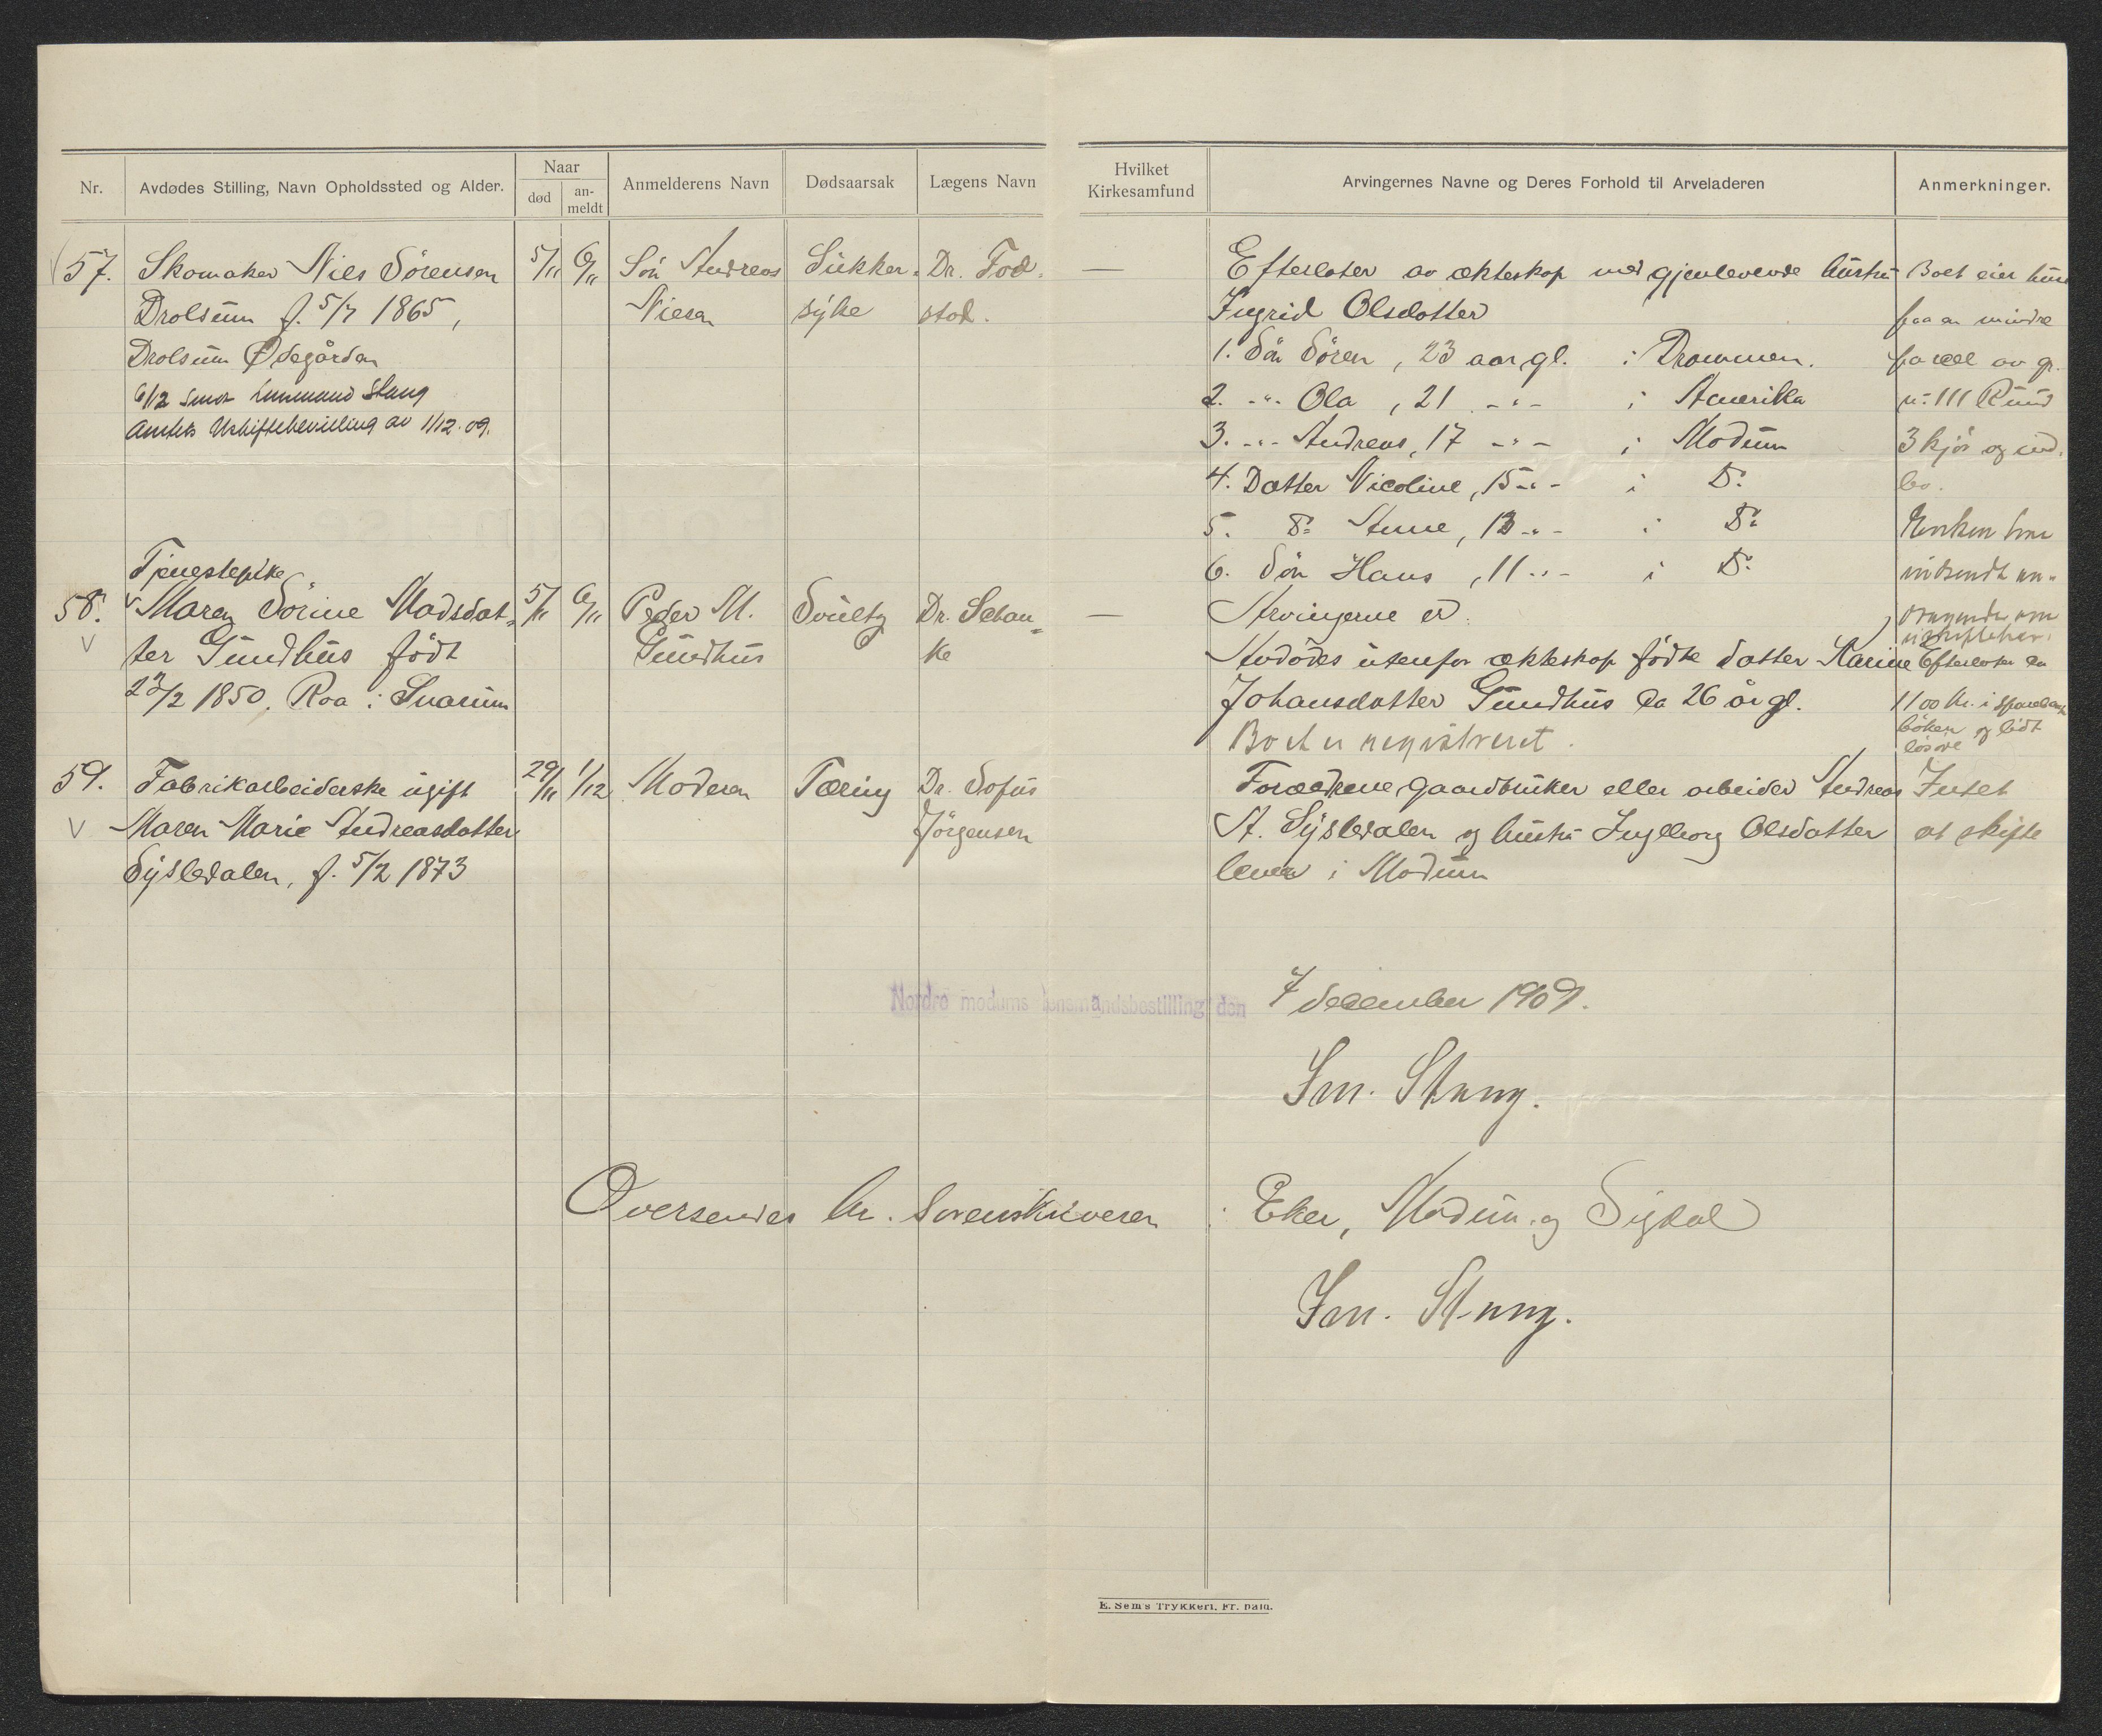 Nr.
Avdødes Stilling, Navn Opholdssted og Alder.
Naar
død
an-
meldt
Anmelderens Navn
Dødsaarsak
Lægens Navn
Hvilket
Kirkesamfund
Arvingernes Navne og Deres Forhold til Arveladeren
Anmerkninger.
57.
Skomaker Niels Sörensen
Drolsum f. 5/7 1865,
Drolsum Ødegården
6/12 Lensmand Stang
Amtets Uskiftebevilling av 1/12.09.
5/11
6/11
Sön Andreas
Nielsen
Sukker-
syke
Dr. Fod-
stad.
—
Efterlater av ekteskap med gjenlevende hustru
Ingrid Olsdatter
1. Sön Sören, 23 aar gl. i Drammen.
2. -"- Ola, 21 -"- i Amerika
3. -"- Andreas, 17 -"- i Modum
4. Datter Nicoline, 15 -"- i Do
5. Do Anne, 13 -"- i Do
6. Sön Hans, 11 -"- i Do
Boet eier hus
paa en mindre
parcel av gr.
n. 111 Rud
3 kjör og ind-
bo.
Enken har
indsendt an-
dragende om
uskiftebev.
58.
V
Tjenestepike
Maren Sörine Madsdat-
ter Gundhus födt
23/2 1850. Roa i Snarum
5/11
6/11
Peder M.
Gundhus
Svulst
Dr. Schan-
ke
—
Arvingerne er:
Avdödes utenfor ekteskap födte datter Karine
Johansdatter Gundhus ca 26 år gl.
Boet er registreret.
Efterlater ca
1100 kr. i sparebank-
böker og lidt
lösöre
59.
V
Fabrikarbeiderske ugift
Maren Marie Andreasdatter
Sysledalen, f. 5/2 1873
29/11
1/12
Moderen
Tæring
Dr. Sofus
Jörgensen
Forældrene, gaardbruker eller arbeider Andreas
A. Sysledalen og hustru Ingeborg Olsdatter
lever i Modum
Intet
at skifte
Nordre modums lensmandsbestilling den
7 december 1909.
Im. Stang.
Oversendes hr. Sorenskriveren
i Eker, Modum og Sigdal
Im. Stang.
E. Sem's Trykkeri, Fr. hald.